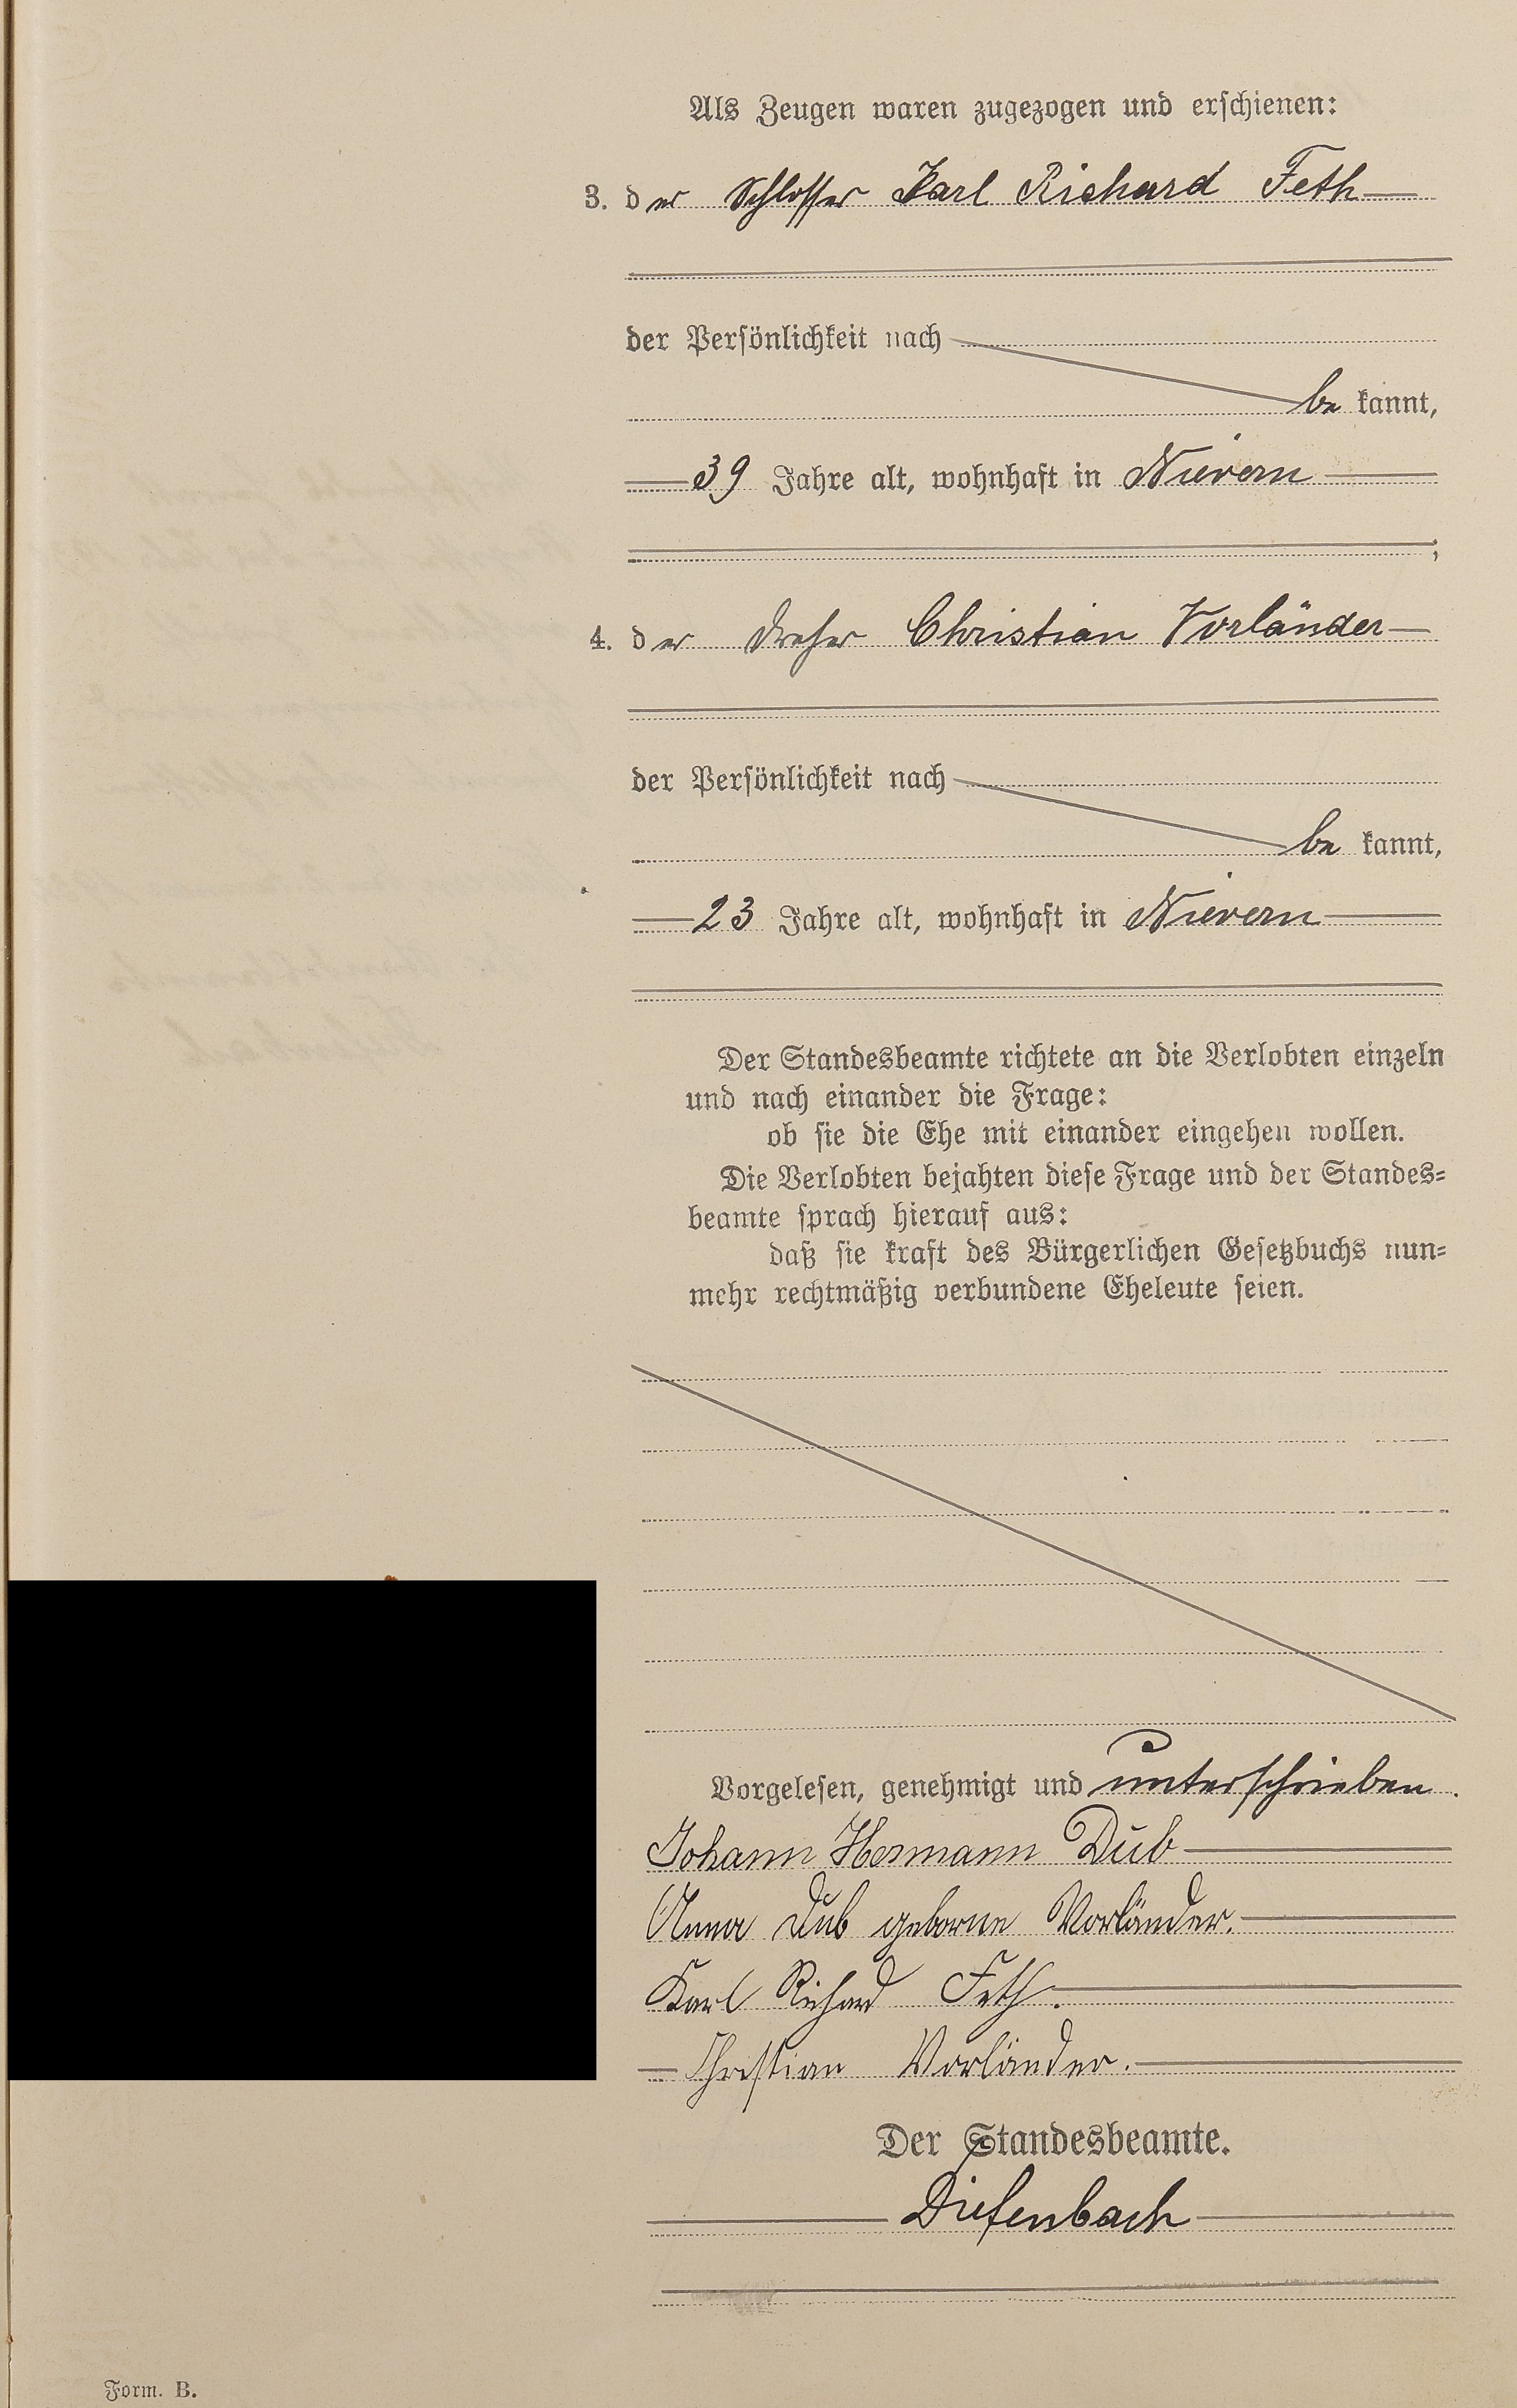 Als Zeugen waren zugezogen und erschienen:
3. der Schlosser Karl Richard Feth
der Persönlichkeit nach
be kannt,
39 Jahre alt, wohnhaft in Nievern
;
4. der Dreher Christian Vorländer
der Persönlichkeit nach
be kannt,
23 Jahre alt, wohnhaft in Nievern
Der Standesbeamte richtete an die Verlobten einzeln
und nach einander die Frage:
ob sie die Ehe mit einander eingehen wollen.
Die Verlobten bejahten diese Frage und der Standes-
beamte sprach hierauf aus:
daß sie kraft des Bürgerlichen Gesetzbuchs nun-
mehr rechtmäßig verbundene Eheleute seien.
Vorgelesen, genehmigt und unterschrieben.
Johann Hermann Dub
Anna Dub geborne Vorländer.
Karl Richard Feth.
Christian Vorländer.
Der Standesbeamte.
Diefenbach
Form. B.